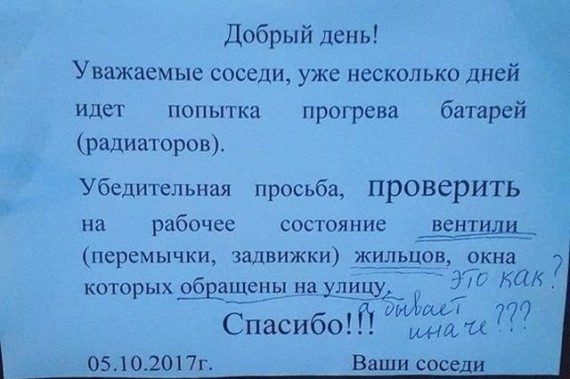 Добрый день!
Уважаемые соседи, уже несколько дней
идет попытка прогрева батарей
(радиаторов).
Убедительная просьба, проверить
на рабочее состояние вентили
(перемычки, задвижки) жильцов, окна
которых обращены на улицу. это как?
а бывает
Спасибо!!! иначе???
05.10.2017г. Ваши соседи